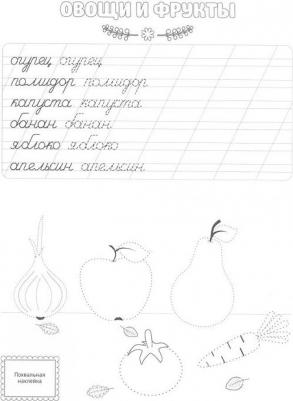 ОВОЩИ И ФРУКТЫ
огурец огурец
помидор помидор
капуста капуста
банан банан
яблоко яблоко
апельсин апельсин
Похвальная
наклейка